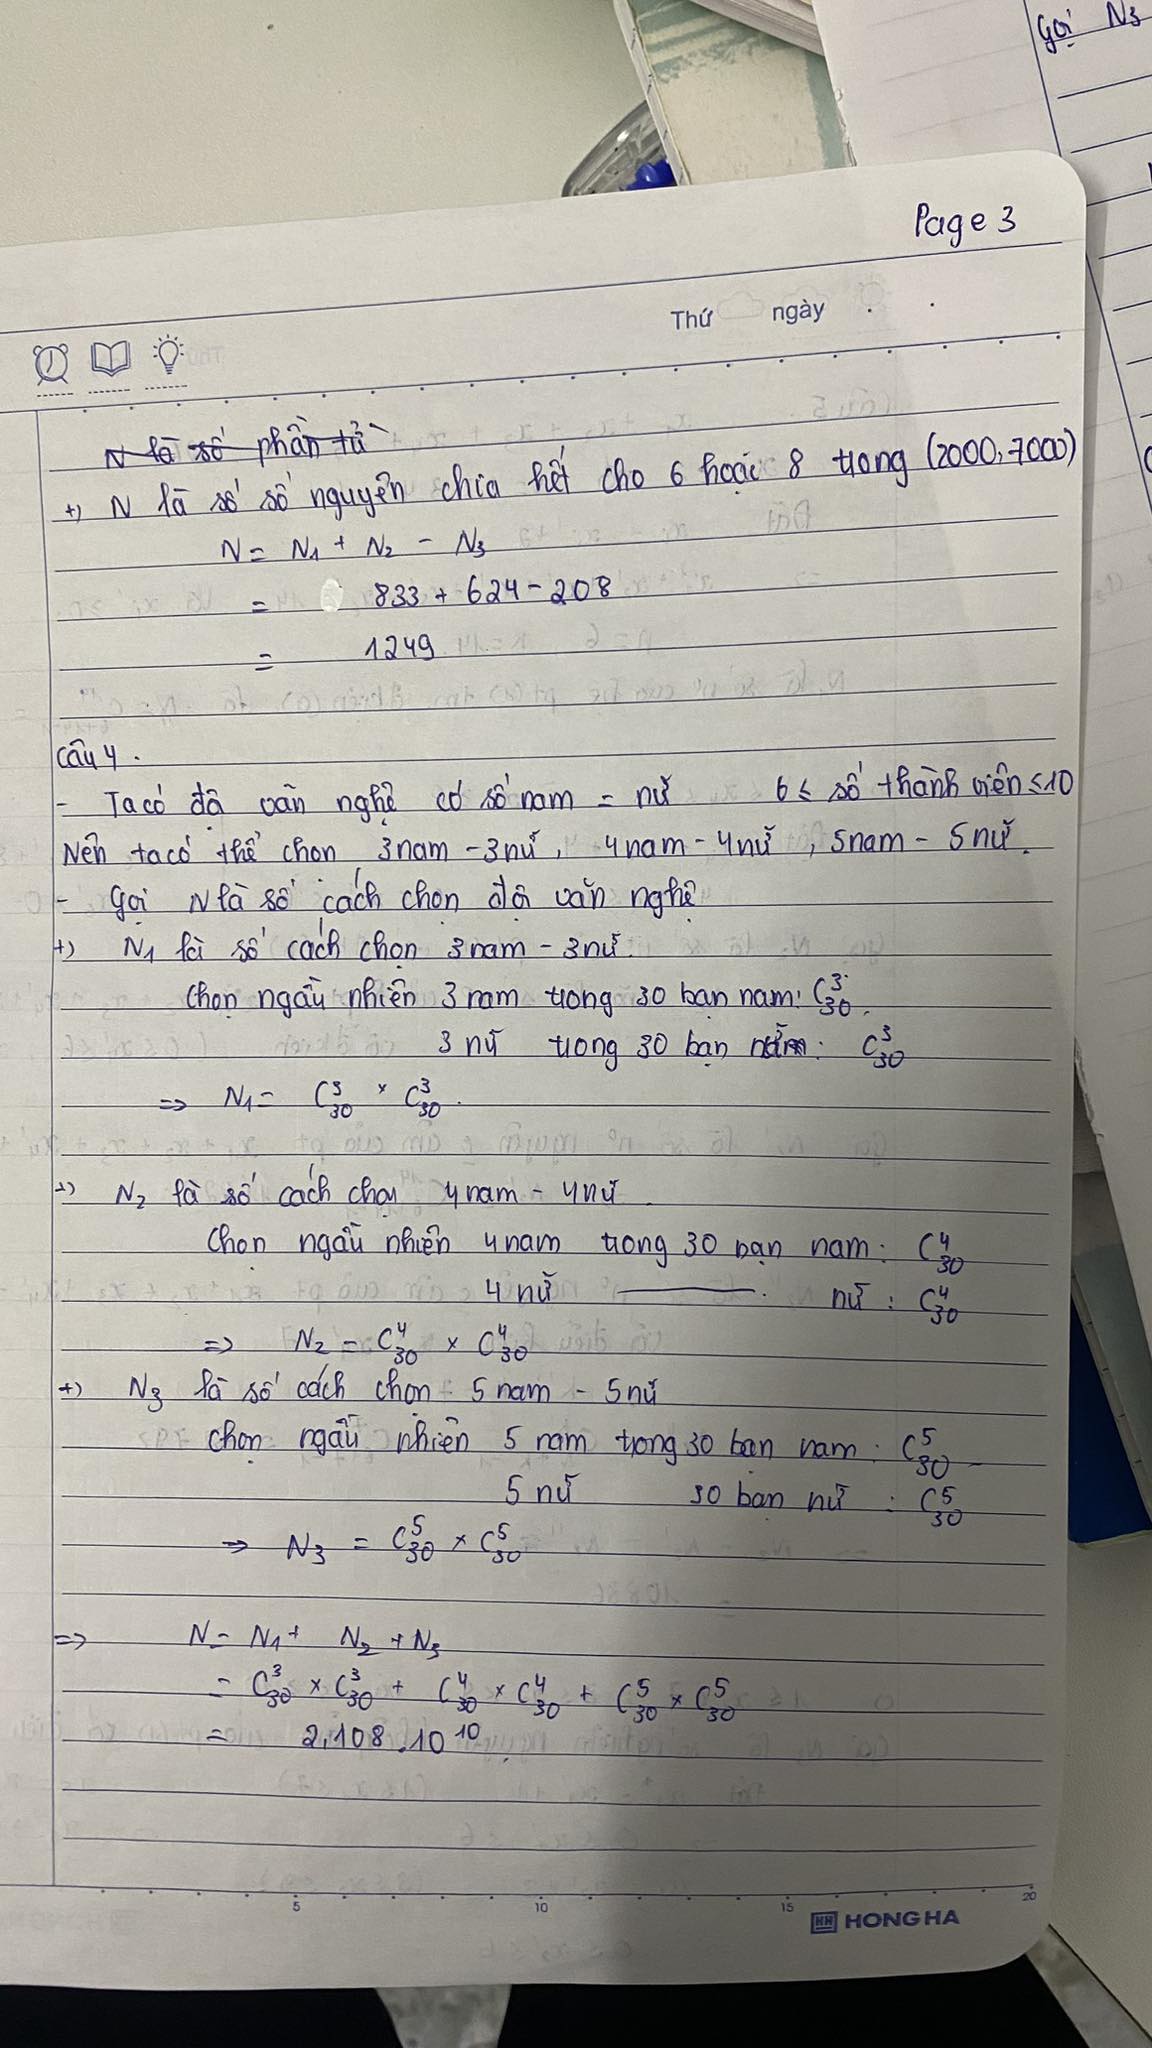 Gọi N3
Page 3
Thứ ngày
N là số phần tử
+) N là số số nguyên chia hết cho 6 hoặc 8 trong (2000, 7000)
N = N1 + N2 - N3
= 833 + 624 - 208
= 1249
Câu 4.
- Ta có đội văn nghệ có số nam = nữ 6 ≤ số thành viên ≤ 10
Nên ta có thể chọn 3 nam - 3 nữ, 4 nam - 4 nữ, 5 nam - 5 nữ.
- Gọi N là số cách chọn đội văn nghệ
+) N1 là số cách chọn 3 nam - 3 nữ.
Chọn ngẫu nhiên 3 nam trong 30 bạn nam: C³₃₀.
3 nữ trong 30 bạn nữ: C³₃₀
=> N1 = C³₃₀ × C³₃₀.
+) N2 là số cách chọn 4 nam - 4 nữ.
Chọn ngẫu nhiên 4 nam trong 30 bạn nam: C⁴₃₀
4 nữ ——— nữ : C⁴₃₀
=> N2 = C⁴₃₀ × C⁴₃₀
+) N3 là số cách chọn 5 nam - 5 nữ
chọn ngẫu nhiên 5 nam trong 30 bạn nam: C⁵₃₀
5 nữ 30 bạn nữ : C⁵₃₀
=> N3 = C⁵₃₀ × C⁵₃₀
=> N = N1 + N2 + N3
= C³₃₀ × C³₃₀ + C⁴₃₀ × C⁴₃₀ + C⁵₃₀ × C⁵₃₀
= 2,108.10¹⁰
5 10 15 20
HH HONG HA